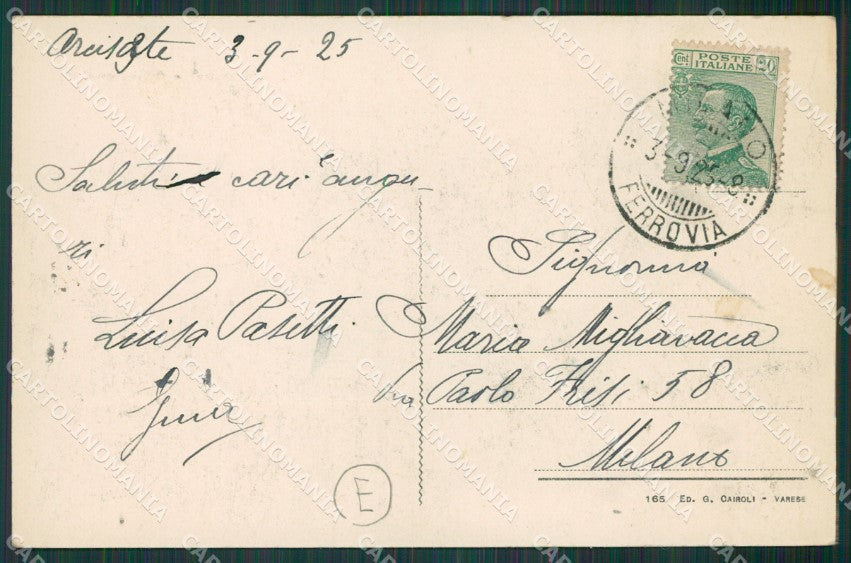 Arcisate 3-9-25
POSTE
ITALIANE
Cent. 20
MILANO
3-9.25-8
FERROVIA
Saluti e cari augu-
ri
Luisa Pasetti
Signorina
Maria Migliavacca
Via Paolo Frisi 58
Milano
E
165 ED. G. CAIROLI - VARESE
CARTOLINOMANIA